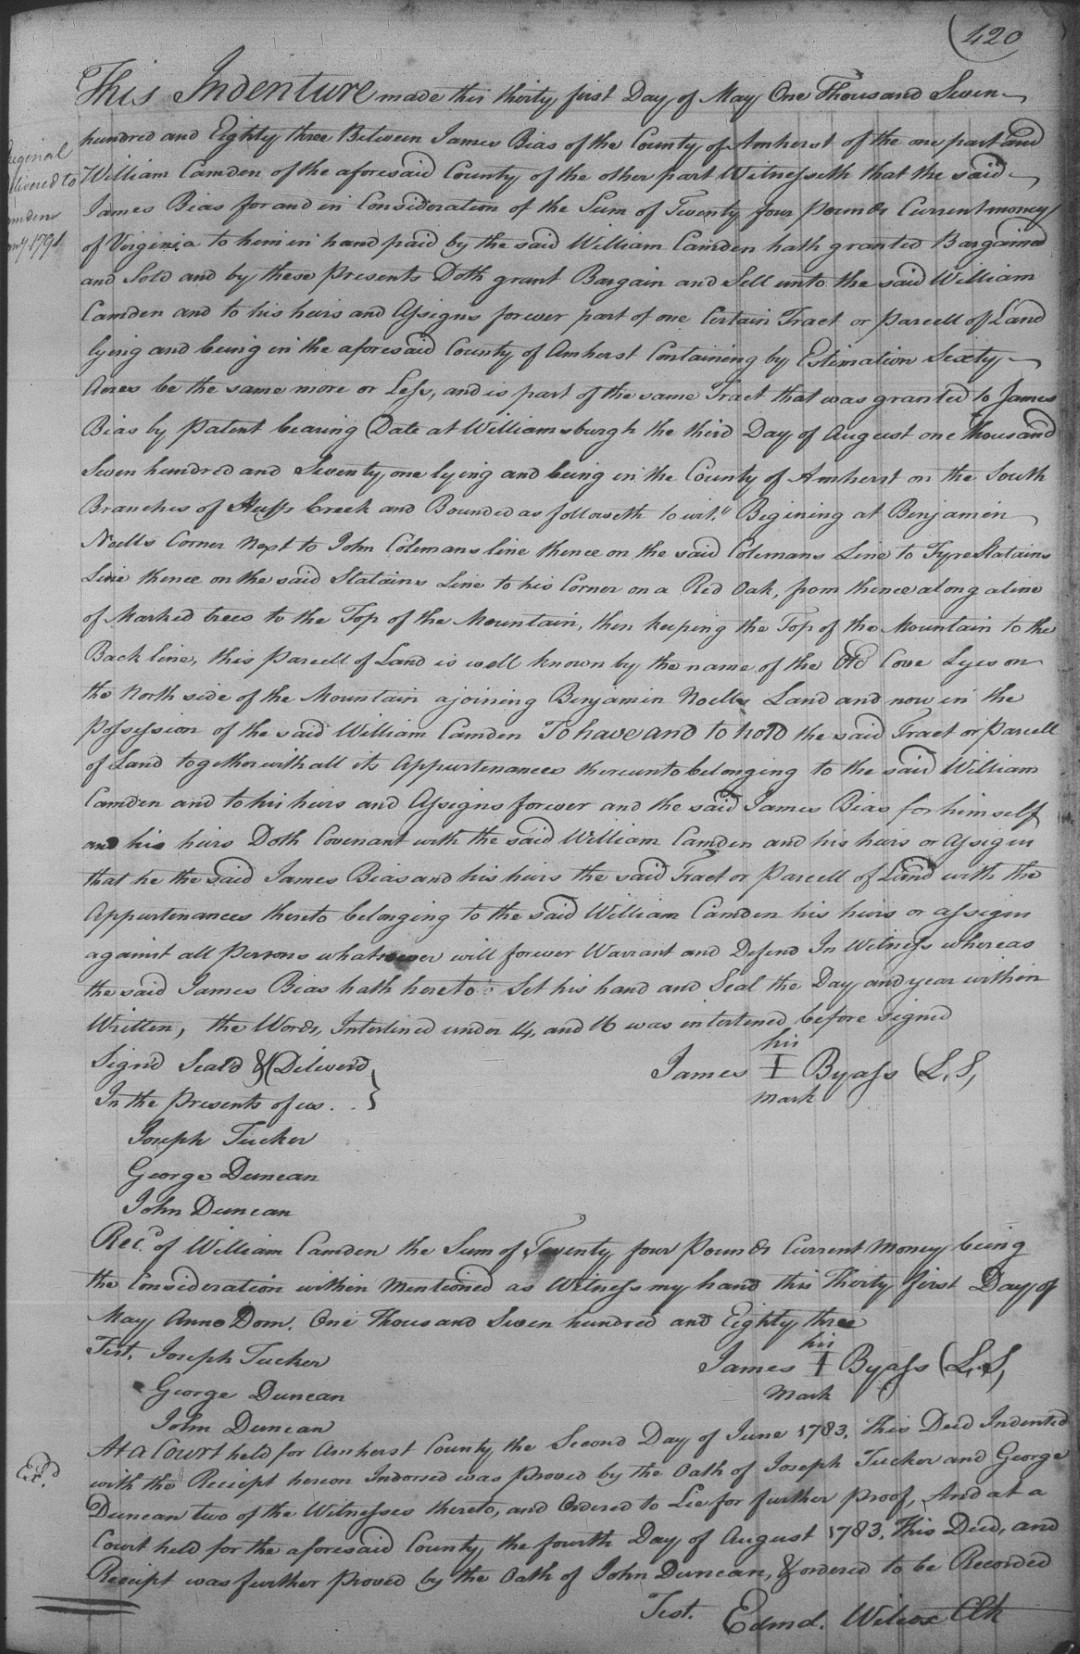 (420
This Indenture made this thirty first Day of May One Thousand Seven
hundred and Eighty three Between James Bias of the County of Amherst of the one part and
William Camden of the aforesaid County of the other part Witnesseth that the said
James Bias for and in Consideration of the Sum of Twenty four Pounds Current money
of Virginia to him in hand paid by the said William Camden hath granted Bargained
and Sold and by these Presents Doth grant Bargain and Sell unto the said William
Camden and to his heirs and Assigns forever part of one Certain Tract or Parcell of Land
lying and being in the aforesaid County of Amherst Containing by Estimation Sixty
Acres be the same more or Less, and is part of the same Tract that was granted to James
Bias by Patent bearing Date at Williamsburgh the third Day of August one thousand
Seven hundred and Seventy one lying and being in the County of Amherst on the South
Branches of Huffs Creek and Bounded as followeth to wit." Begining at Benjamin
Noells Corner Next to John Colemans line thence on the said Colemans Line to Tyre Statains
Line thence on the said Statains Line to his Corner on a Red Oak, from thence along a line
of Marked trees to the Top of the Mountain, then keeping the Top of the Mountain to the
Back line, this Parcell of Land is well known by the name of the Old Cove Lyes on
the North side of the Mountain ajoining Benjamin Noells Land and now in the
Possession of the said William Camden To have and to hold the said Tract or Parcell
of Land together with all its Appurtenances thereunto belonging to the said William
Camden and to his heirs and Assigns forever and the said James Bias for himself
and his heirs Doth Covenant with the said William Camden and his heirs or assigns
that he the said James Bias and his heirs the said Tract or Parcell of Land with the
Appurtenances thereto belonging to the said William Camden his heirs or assigns
against all Persons whatsoever will forever Warrant and Defend In Witness whereas
the said James Bias hath hereto Set his hand and Seal the Day and year within
Written, the Words, Interlined under 14, and 16 was intertened before signed
Signd Seald & Deliverd
In the Presents of us . . }
his
James I Byass (L, S,
mark
Joseph Tucker
George Duncan
John Duncan
Rec.d of William Camden the Sum of Twenty four Pounds Current Money being
the Consideration within Mentioned as Witness my hand this Thirty first Day of
May Anno Dom. One Thousand Seven hundred and Eighty three
Test, Joseph Tucker
George Duncan
John Duncan
his
James I Byass (L, S,
Mark
At a Court held for Amherst County the Second Day of June 1783. This Deed Indented
with the Receipt hereon Indorsed was proved by the Oath of Joseph Tucker and George
Duncan two of the Witnesses thereto, and Ordered to Lie for further Proof, And at a
Court held for the aforesaid County the fourth Day of August 1783. This Deed, and
Receipt was further proved by the Oath of John Duncan, & ordered to be Recorded
Test. Edmd. Wilcox Clk